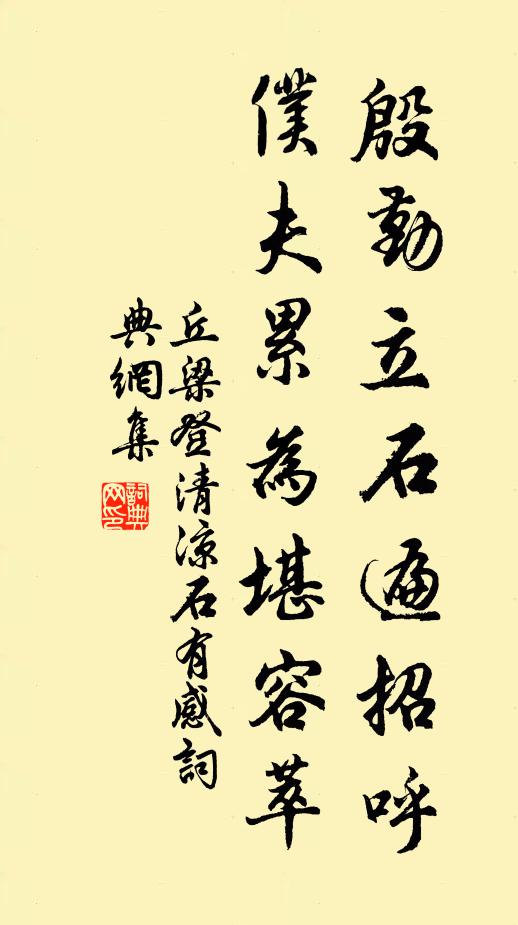 殷勤立石遍招呼
僕夫累為堪容萃
丘梁登清涼石有感詞
典網集
詞典
网印